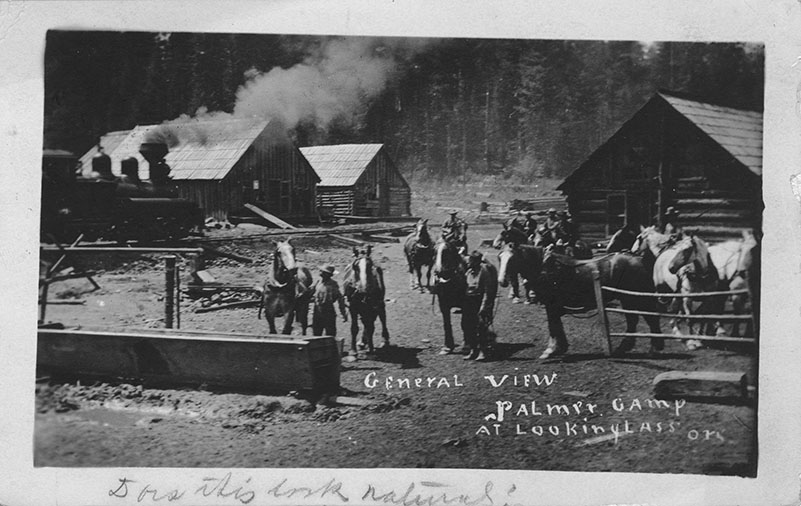 General View
Palmer Camp
At LookingLass Or.
Does this look natural?